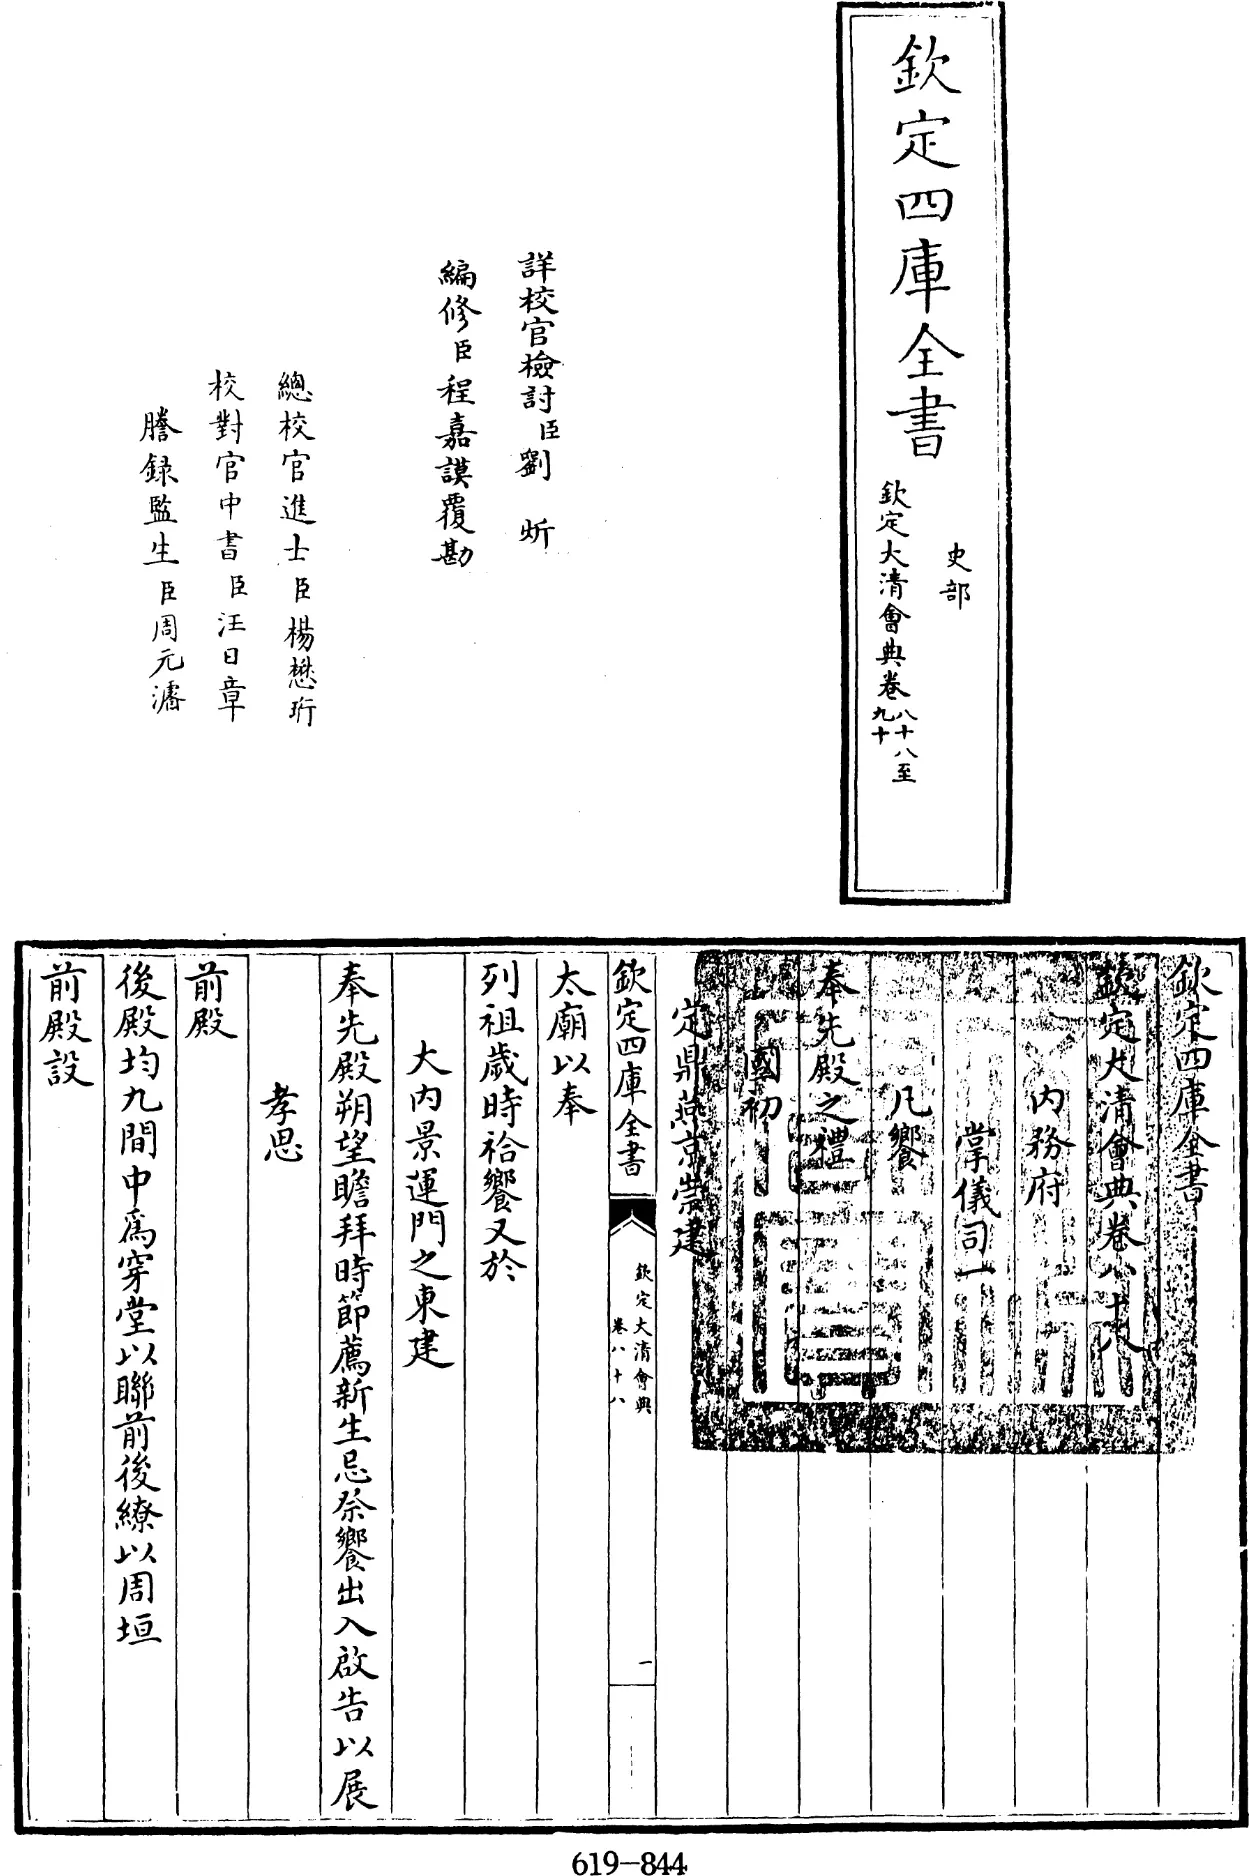 欽定四庫全書
史部
欽定大清會典卷八十八至九十
詳校官檢討臣劉炘
編修臣程嘉謨覆勘
總校官進士臣楊懋珩
校對官中書臣汪日章
謄録監生臣周元濬
欽定四庫全書
欽定大清會典卷八十八
内務府
掌儀司一
凡饗
奉先殿之禮
國初
定鼎燕京崇建
欽定四庫全書
欽定大清會典
卷八十八
一
太廟以奉
列祖歲時祫饗又於
大内景運門之東建
奉先殿朔望瞻拜時節薦新生忌祭饗出入啟告以展
孝思
前殿
後殿均九間中爲穿堂以聯前後繚以周垣
前殿設
619-844